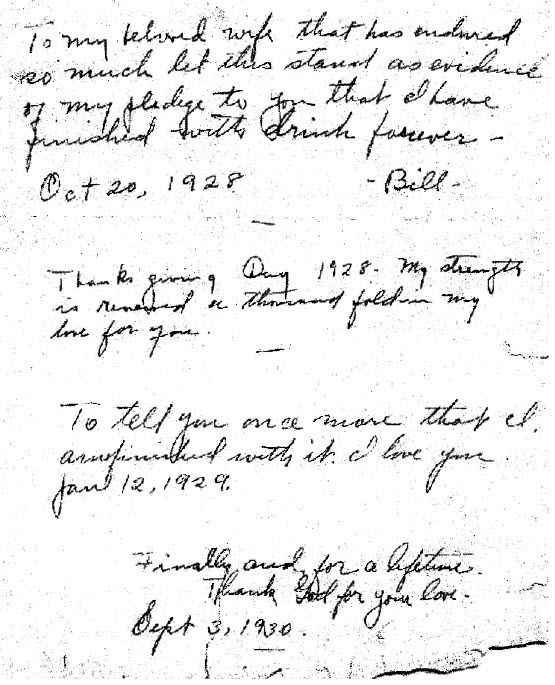 To my beloved wife that has endured
so much let this stand as evidence
of my pledge to you that I have
finished with drink forever -
Oct 20, 1928 - Bill -
Thanksgiving Day 1928. My strength
is renewed a thousand fold in my
love for you.
To tell you once more that I
am finished with it. I love you
Jan 12, 1929.
Finally and for a lifetime.
Thank God for your love.
Sept 3, 1930.